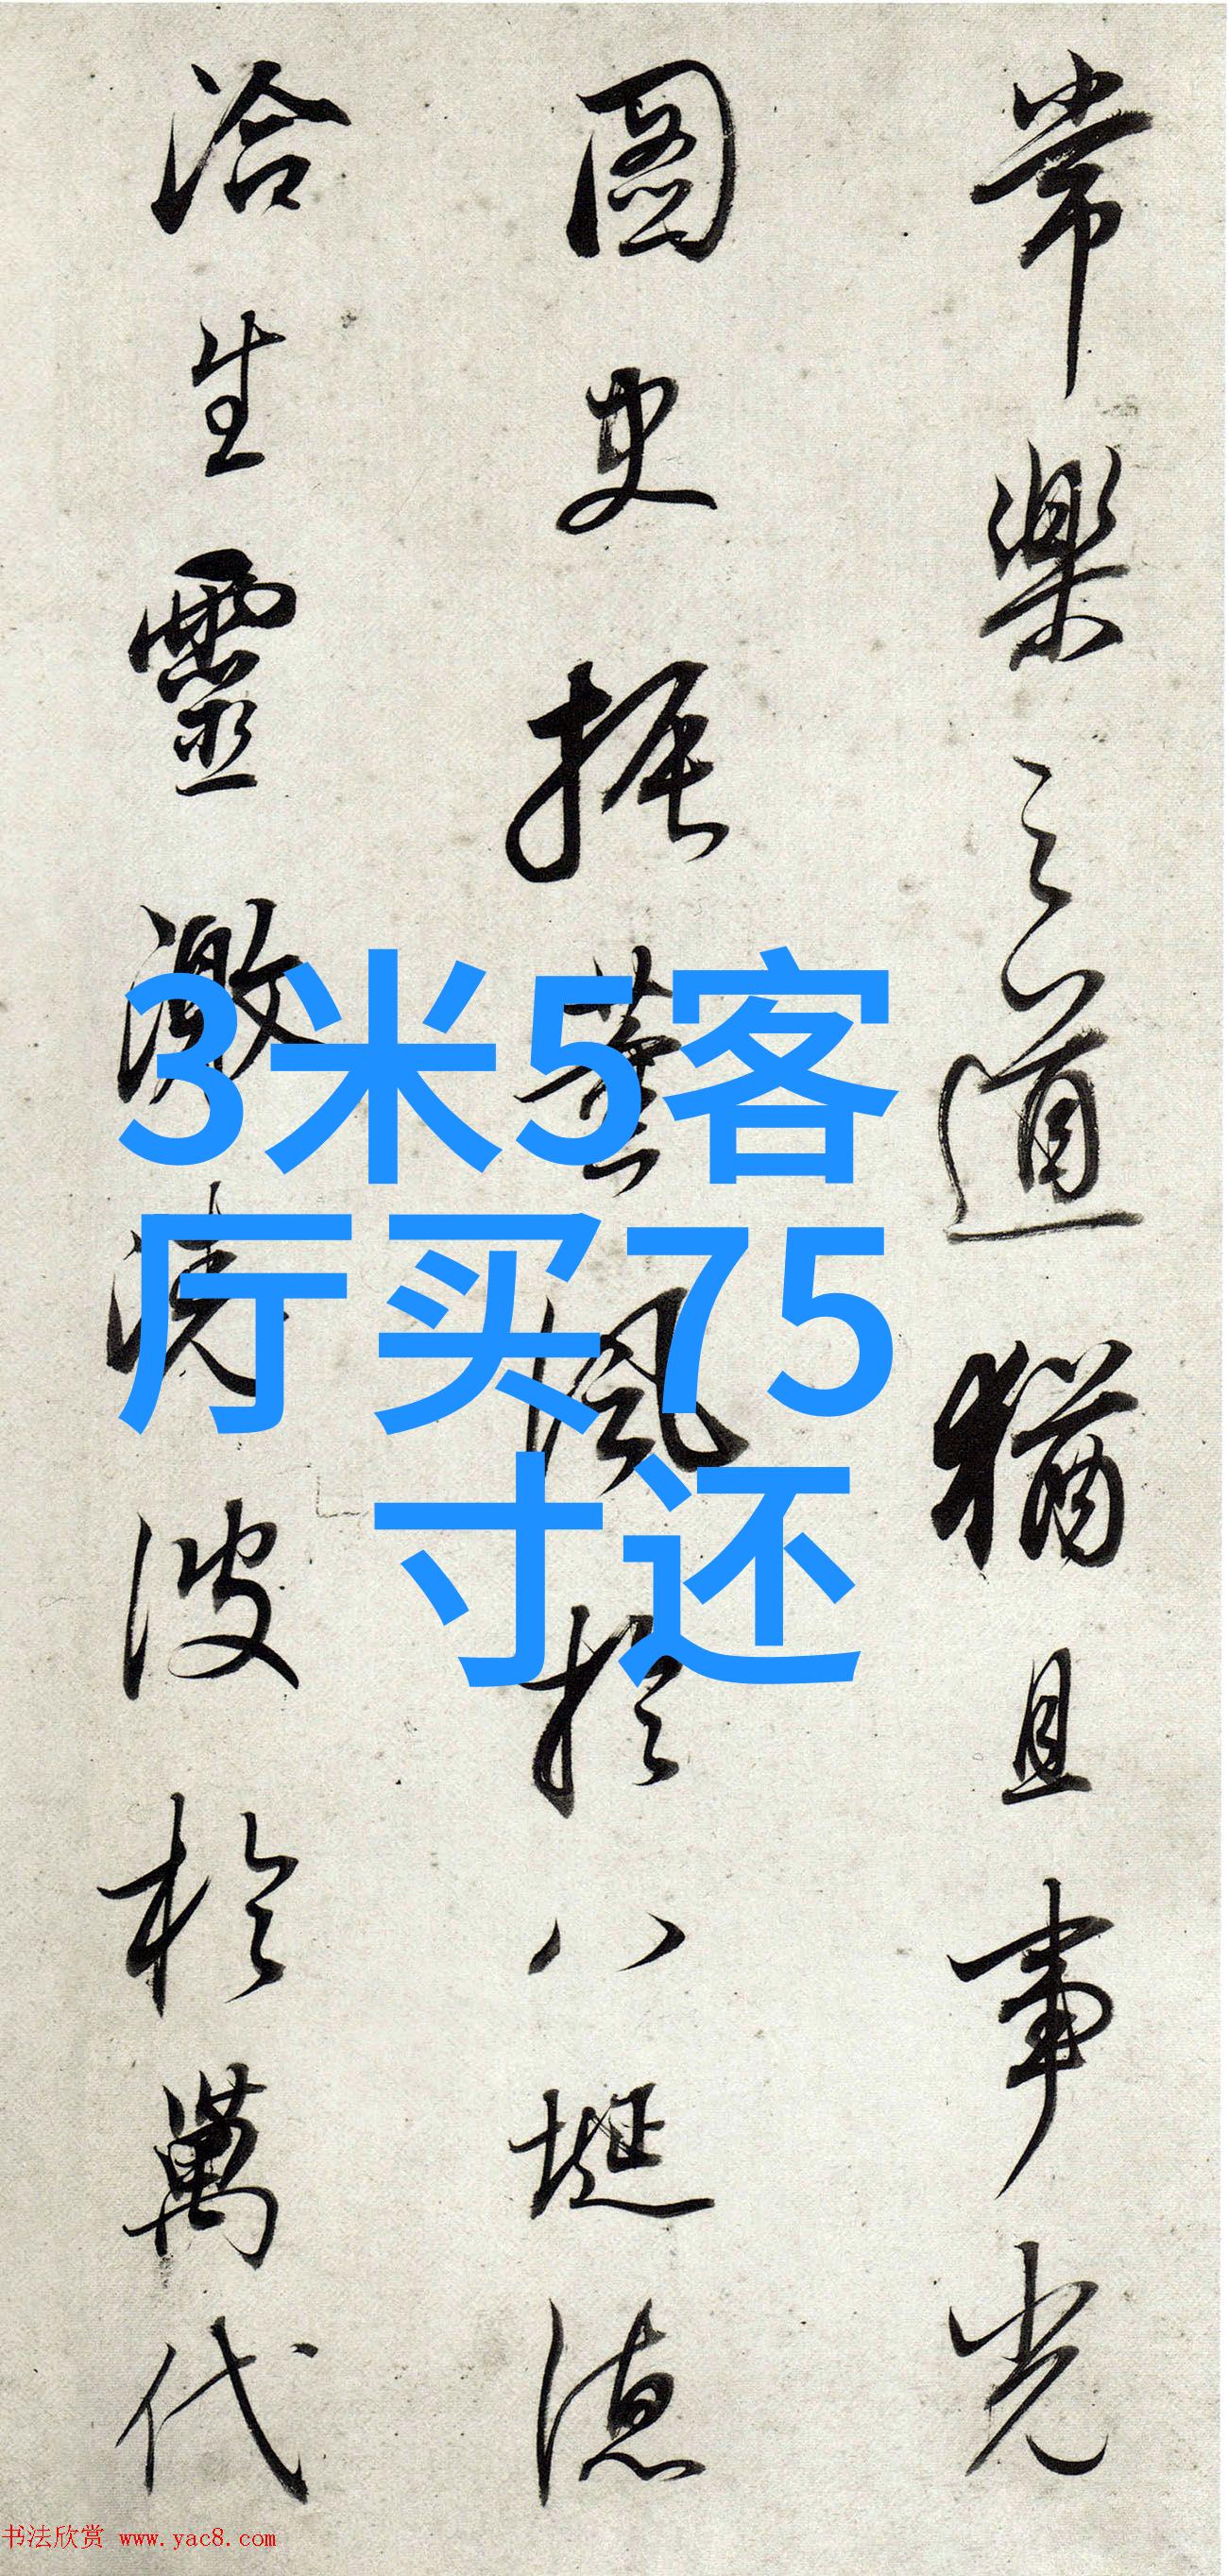 常樂之道猶且事光
圖史振薰風於八埏德
洽生靈激清波於萬代
3米5客
厅买75
寸还
书法欣赏 www.yac8.com